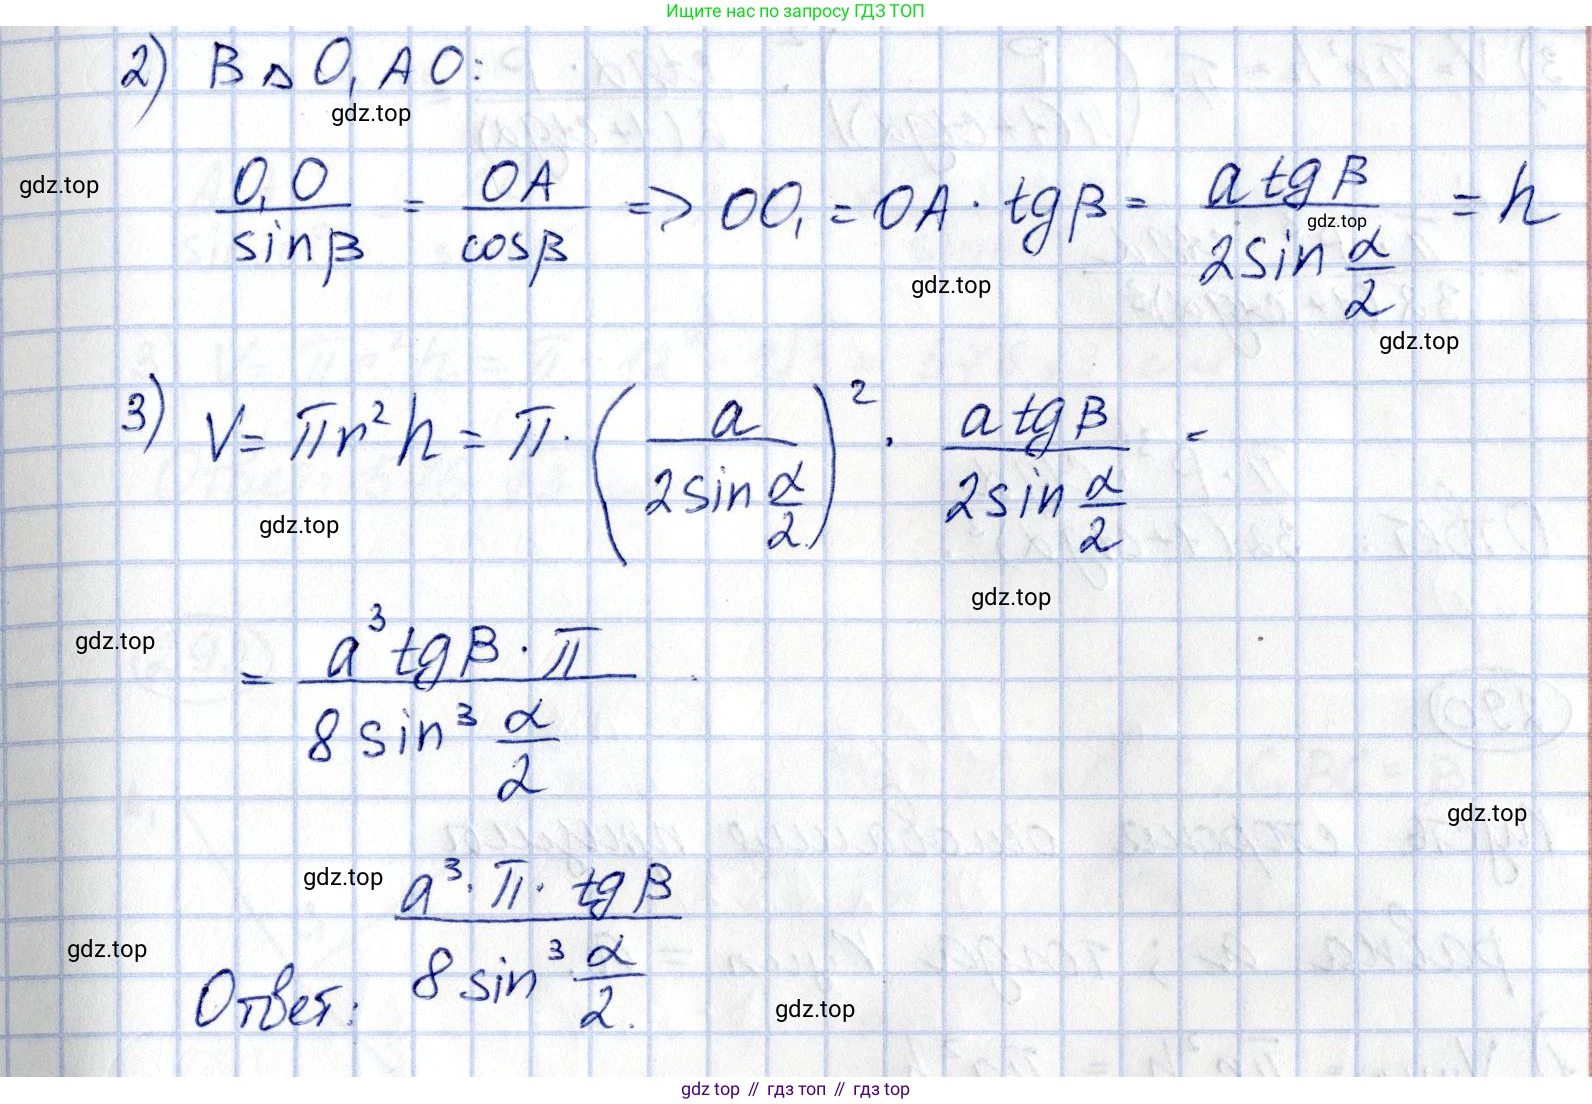 Ищите нас по запросу ГДЗ ТОП
2) В △ O₁AO:
gdz.top
gdz.top
O₁O / sinβ = OA / cosβ => OO₁ = OA · tgβ = a tgβ / 2 sin α/2 = h
gdz.top
gdz.top
gdz.top
3) V = πr²h = π · (a / 2 sin α/2)² · a tgβ / 2 sin α/2 =
gdz.top
gdz.top
gdz.top
= a³ tgβ · π / 8 sin³ α/2
gdz.top
gdz.top
gdz.top
Ответ: a³ · π · tgβ / 8 sin³ α/2.
gdz.top
gdz top // гдз топ // гдз top